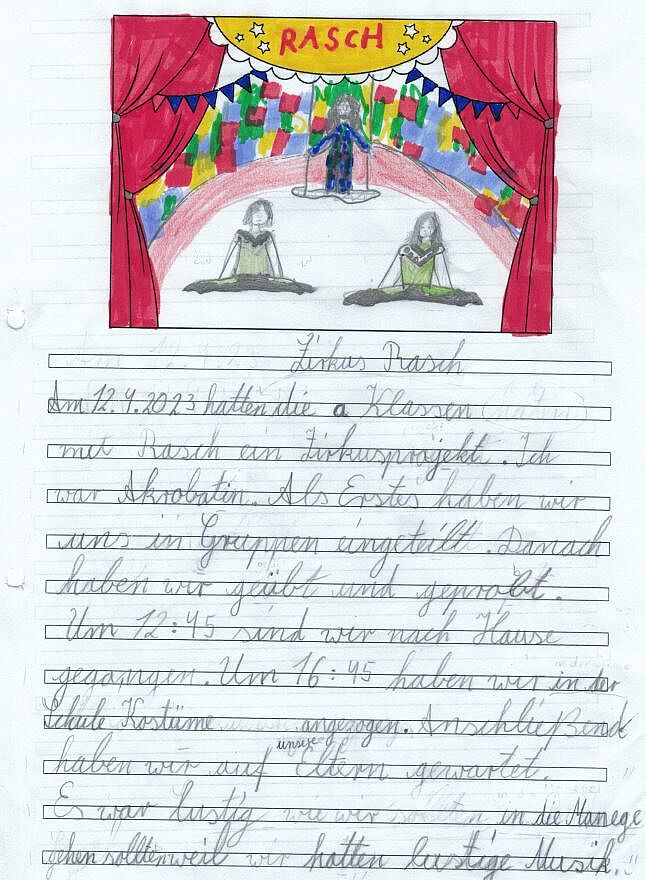 RASCH
Zirkus Rasch
Am 12.4.2023 hatten die a Klassen
met Rasch ein Zirkusprojekt. Ich
war Akrobatin. Als Erstes haben wir
uns in Gruppen eingeteilt. Danach
haben wir geübt und geprobt.
Um 12:45 sind wir nach Hause
gegangen. Um 16:45 haben wir in der
Schule Kostüme angezogen. Anschließend
haben wir auf unsere Eltern gewartet.
Es war lustig wie wir in die Manege
gehen sollten weil wir hatten lustige Musik.